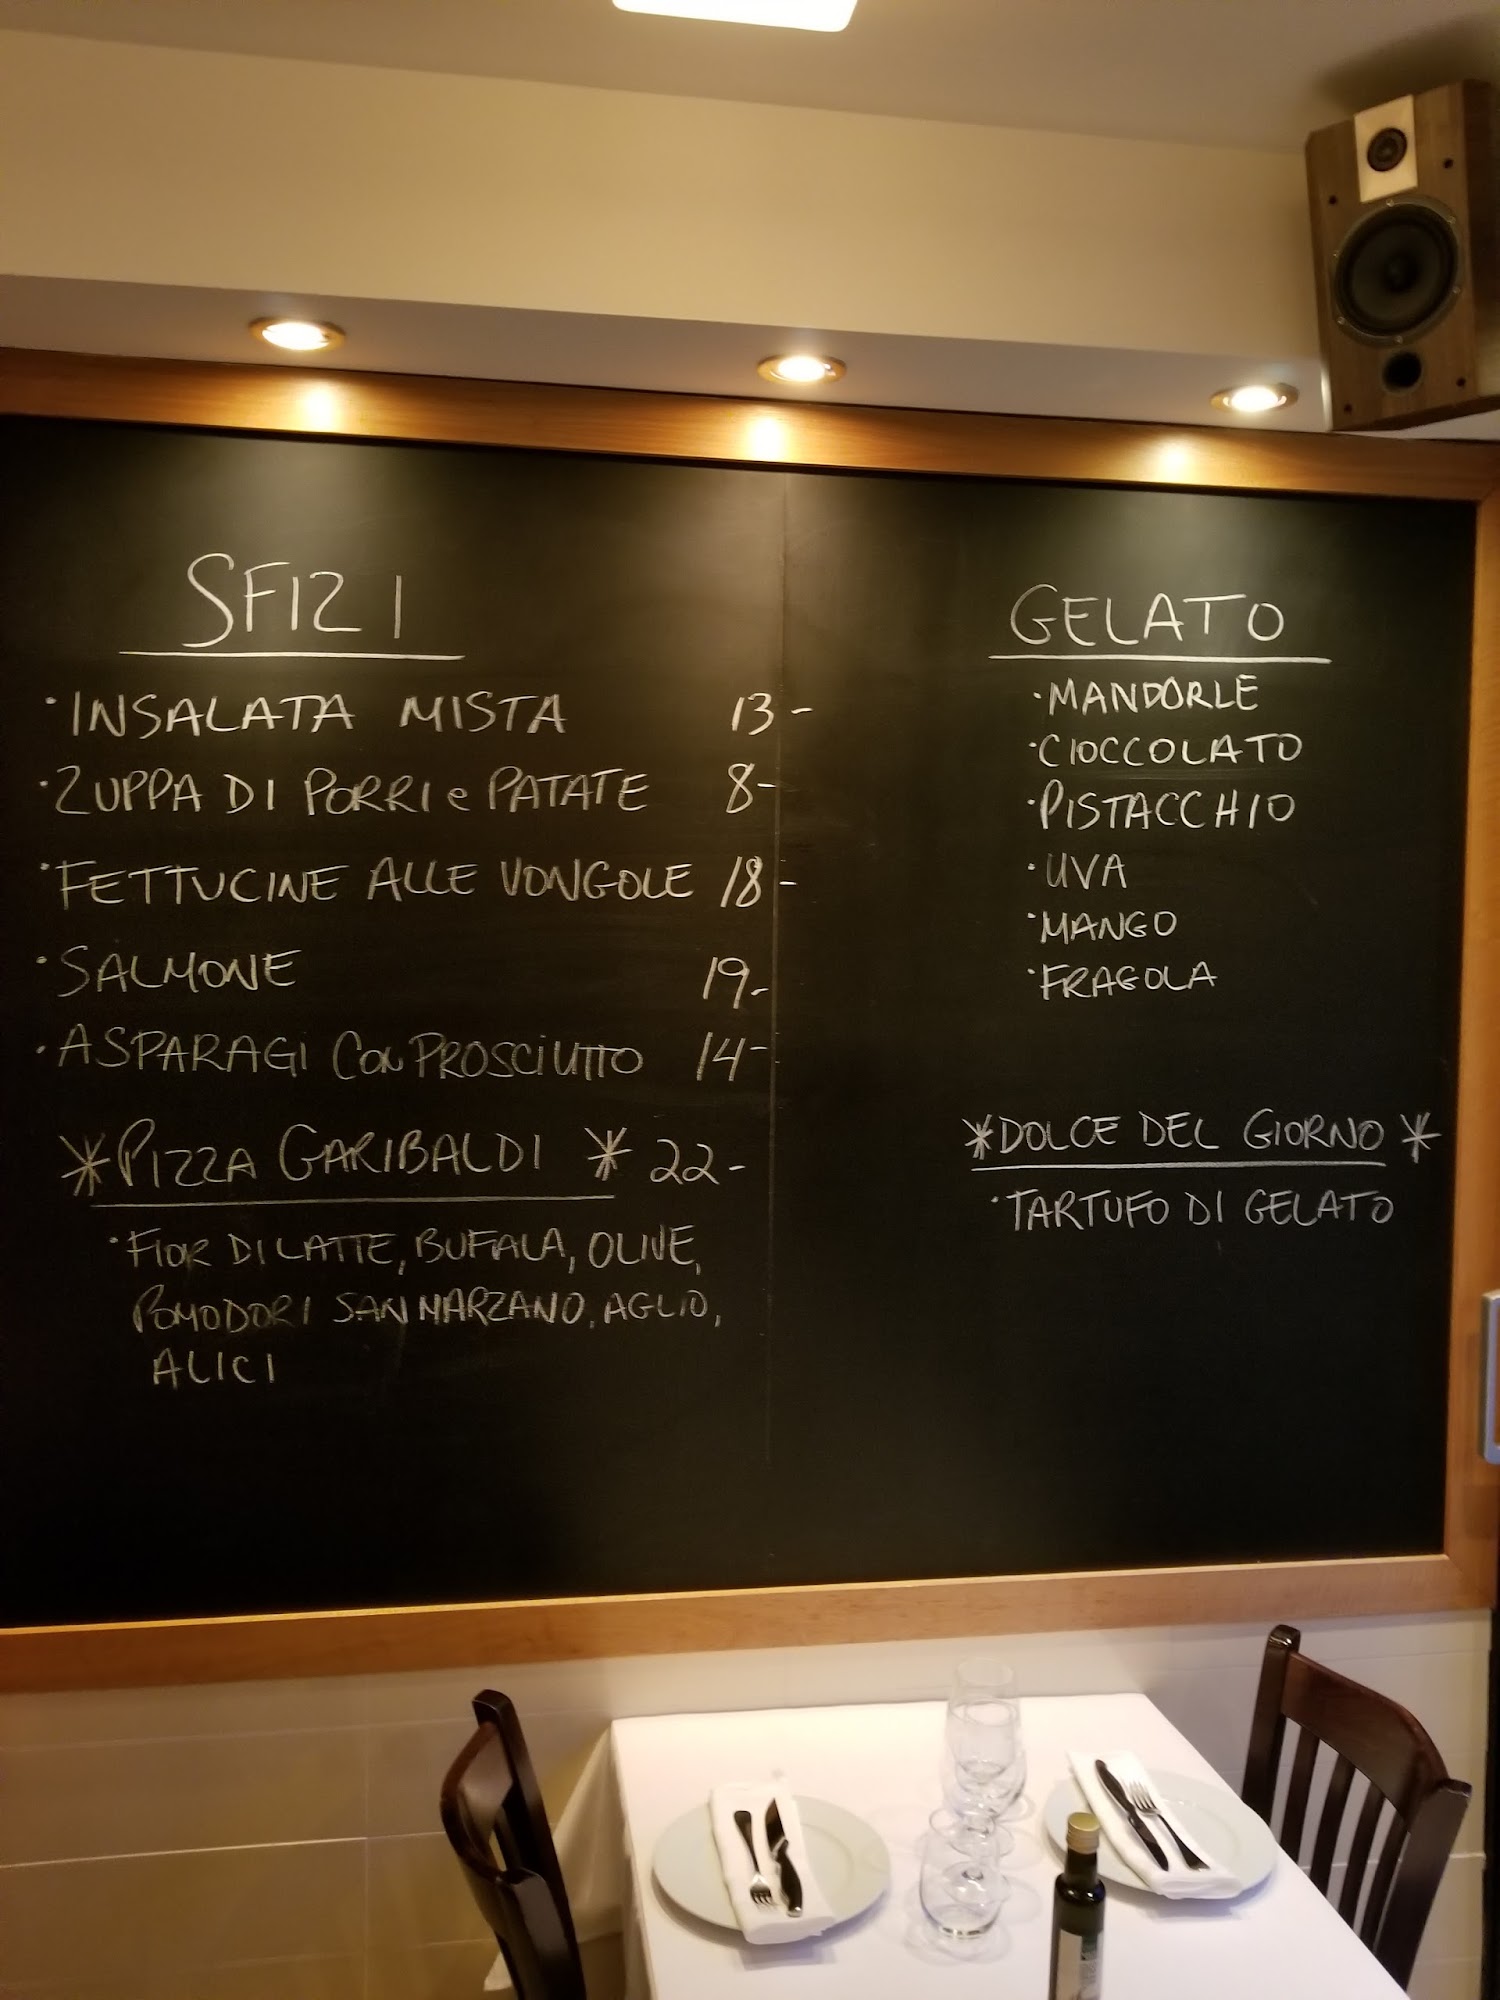 SFIZI
·INSALATA MISTA 13-
·ZUPPA DI PORRI e PATATE 8-
·FETTUCINE ALLE VONGOLE 18-
·SALMONE 19-
·ASPARAGI CON PROSCIUTTO 14-
*PIZZA GARIBALDI * 22-
·FIOR DI LATTE, BUFALA, OLIVE,
POMODORI SAN MARZANO, AGLIO,
ALICI
GELATO
·MANDORLE
·CIOCCOLATO
·PISTACCHIO
·UVA
·MANGO
·FRAGOLA
*DOLCE DEL GIORNO *
·TARTUFO DI GELATO